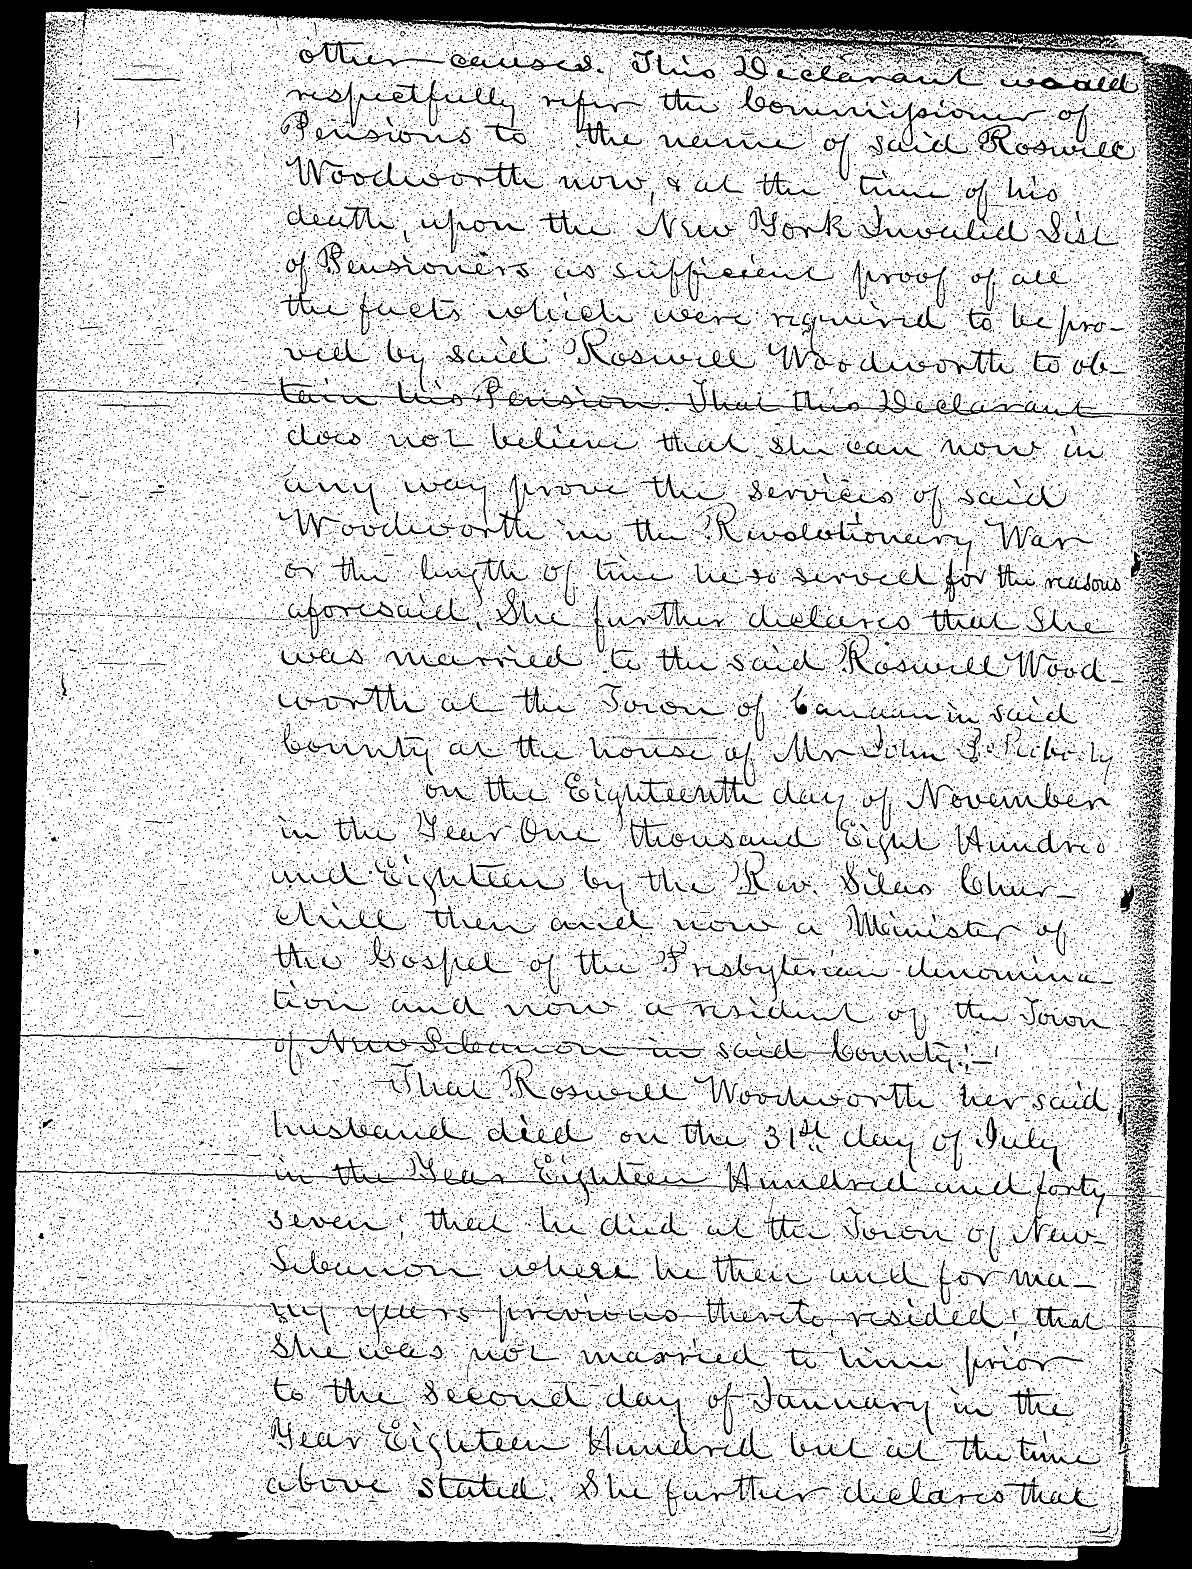 other caused. This Declarant would
respectfully refer the Commissioner of
Pensions to the name of said Roswell
Woodworth now, & at the time of his
death, upon the New York Invalid List
of Pensioners as sufficient proof of all
the facts which were required to be pro-
ved by said Roswell Woodworth to ob-
tain his Pension. That this Declarant
does not believe that she can now in
any way prove the services of said
Woodworth in the Revolutionary War
or the length of time he so served for the reasons
aforesaid. She further declares that She
was married to the said Roswell Wood-
worth at the Town of Canaan in said
County at the house of Mr John
on the Eighteenth day of November
in the Year One thousand Eight Hundred
and Eighteen by the Rev. Silas Chur-
chill then and now a Minister of
the Gospel of the Presbyterian denomina-
tion and now a resident of the Town
of New Lebanon in said County.
That Roswell Woodworth her said
husband died on the 31st day of July
in the Year Eighteen Hundred and forty
seven; that he died at the Town of New
Lebanon where he then and for ma-
ny years previous thereto resided; that
She was not married to him prior
to the Second day of January in the
Year Eighteen Hundred but at the time
above stated. She further declares that